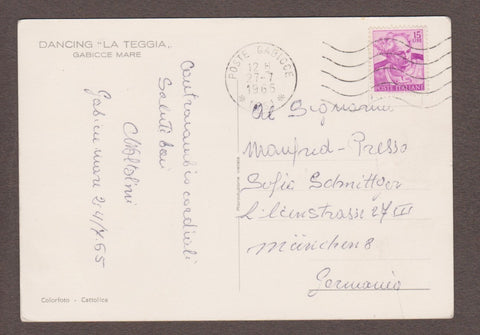 DANCING "LA TEGGIA"
GABICCE MARE
Contracambio cordiali
Saluti
Gabicce mare
POSTE GABICCE
12 8
27-7
1965
15
LIRE
POSTE ITALIANE
Al Signorino
Manfred-Presso
Sofia Schmittger
Lilienstrasse 27 III
München 8
Germania
Colorfoto - Cattolica